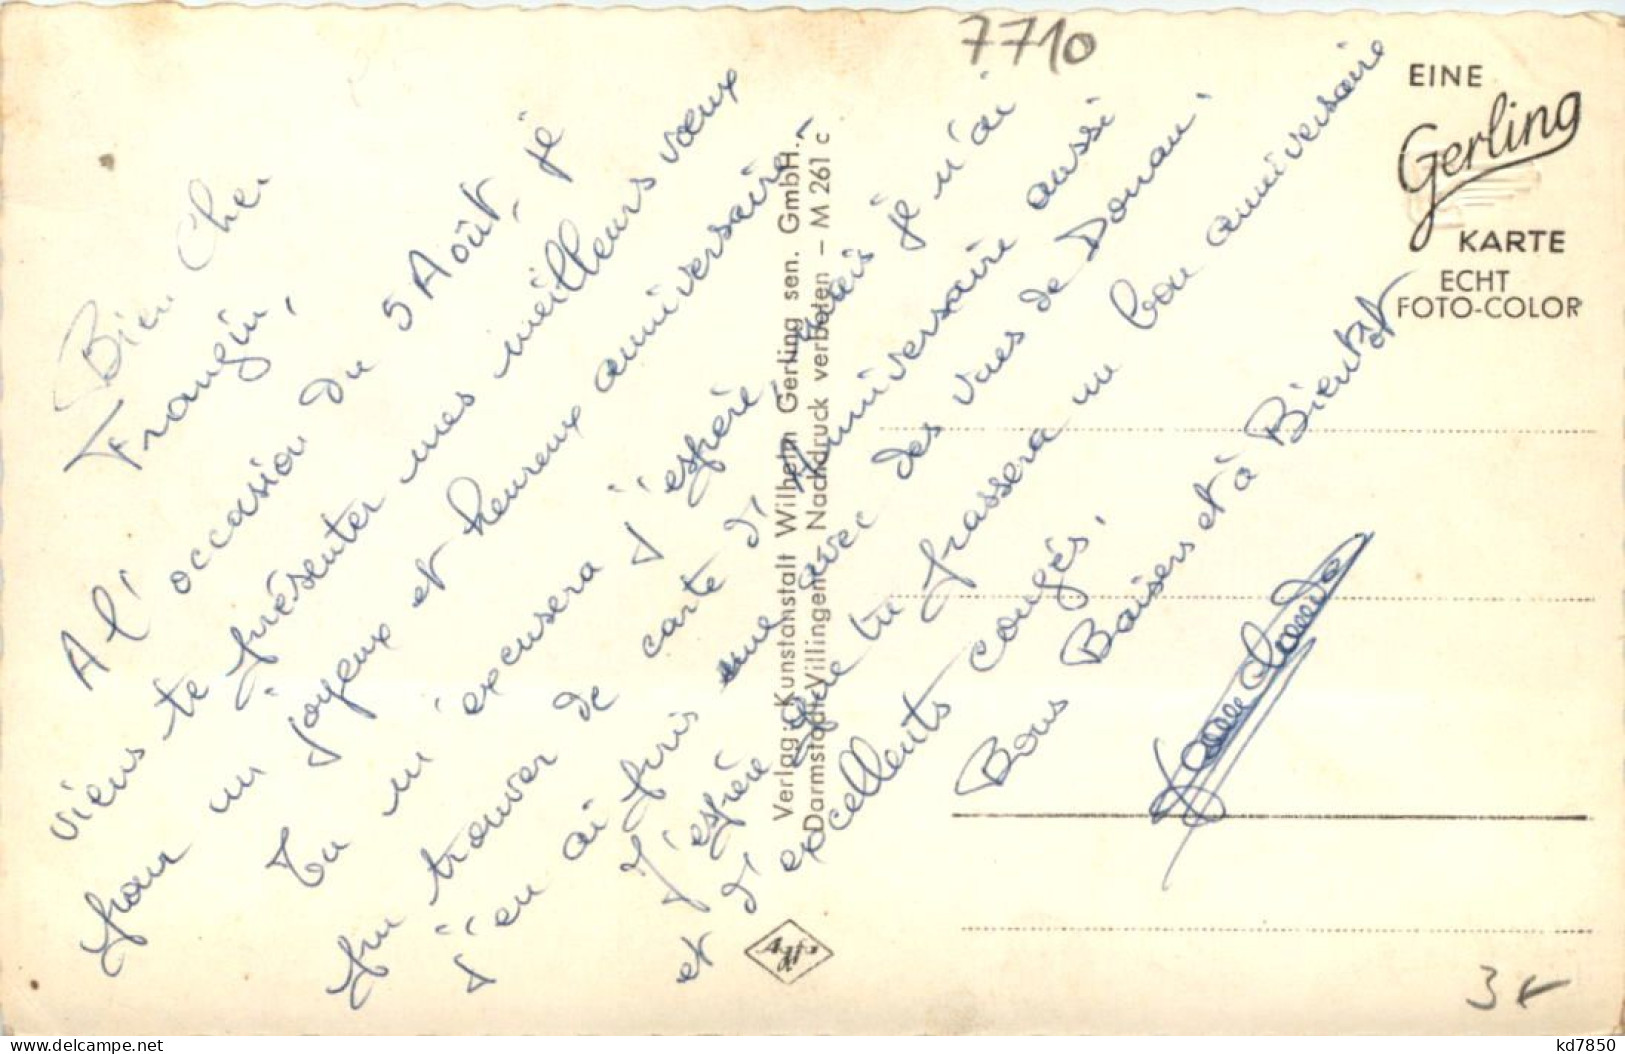 7710
EINE
Gerling
KARTE
ECHT
FOTO-COLOR
Bien Cher
Frangin,
A l'occasion du 5 Août, je
viens te présenter mes meilleurs vœux
pour un joyeux et heureux anniversaire.
Tu m'excusera j'espère, mais je n'ai
pu trouver de carte d'Anniversaire aussi
j'en ai pris une avec des vues de Donau.
J'espère que tu passera un bon anniversaire
et d'excellents congés.
Bons Baisers et à Bientôt
Verlag: Kunstanstalt Wilhelm Gerling sen. GmbH.
Darmstadt-Villingen. Nachdruck verboten – M 261 c
Agfa
3
kd7850